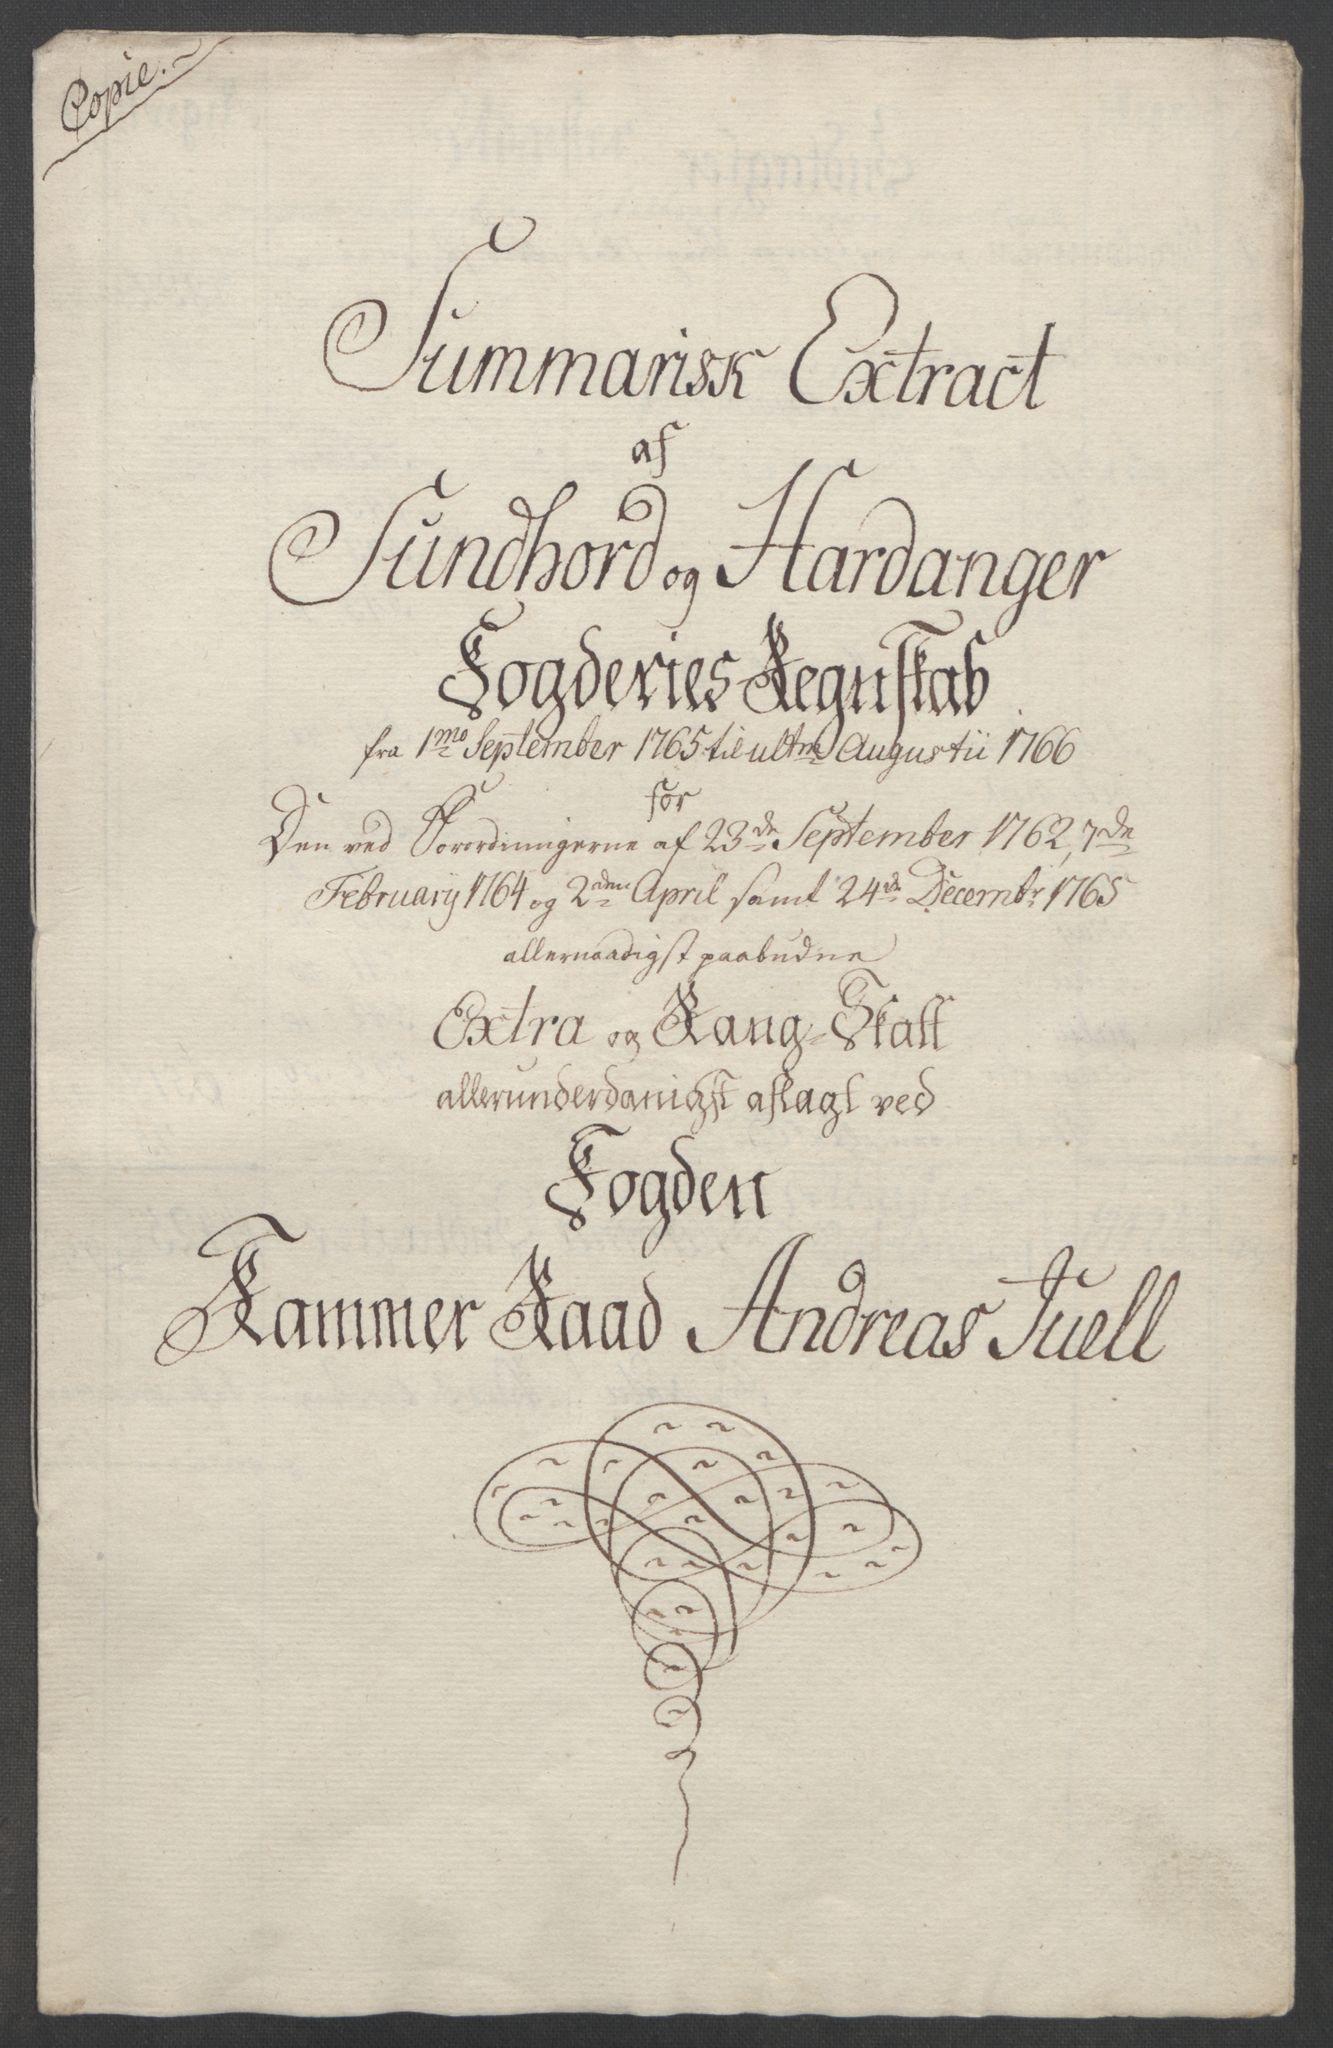 Copie.
Summarisk Extract
af
Sundhord og Hardanger
Fogderies Regnskab
fra 1mo September 1765 til ultm Augustii 1766
for
Den ved Forordningerne af 23de September 1762, 7de
Februarij 1764 og 2den April samt 24de Decembr 1765
allernaadigst paabudne
Extra og Rang-Skatt
allerunderdanigst aflagt ved
Fogden
Kammer Raad Andreas Juell